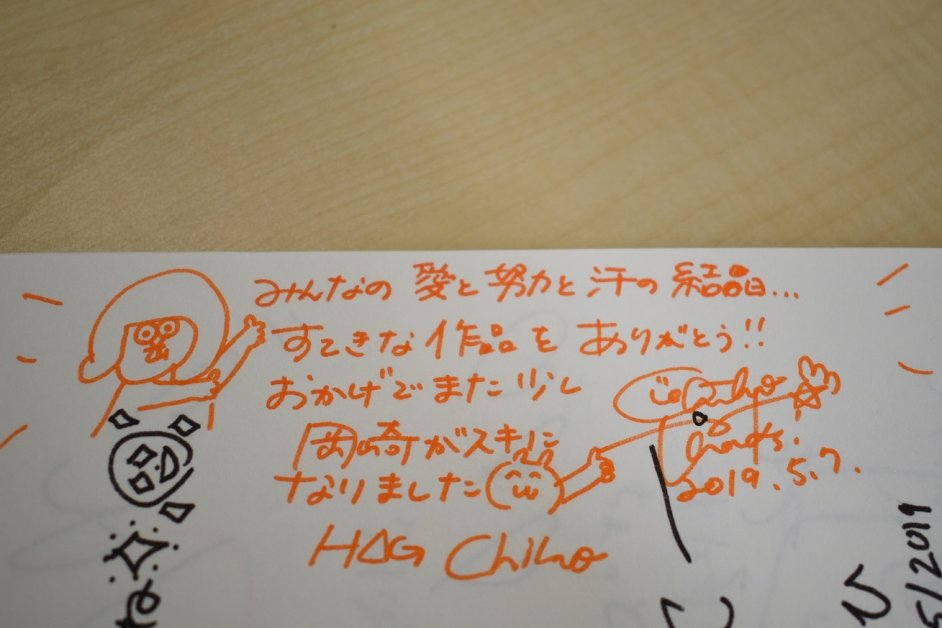 みんなの 愛と努力と汗の 結晶...
すてきな 作品を ありがとう!!
おかげでまた少し
岡崎がスキに
なりました
2019.5.7.
HAG Chiho
5/2019